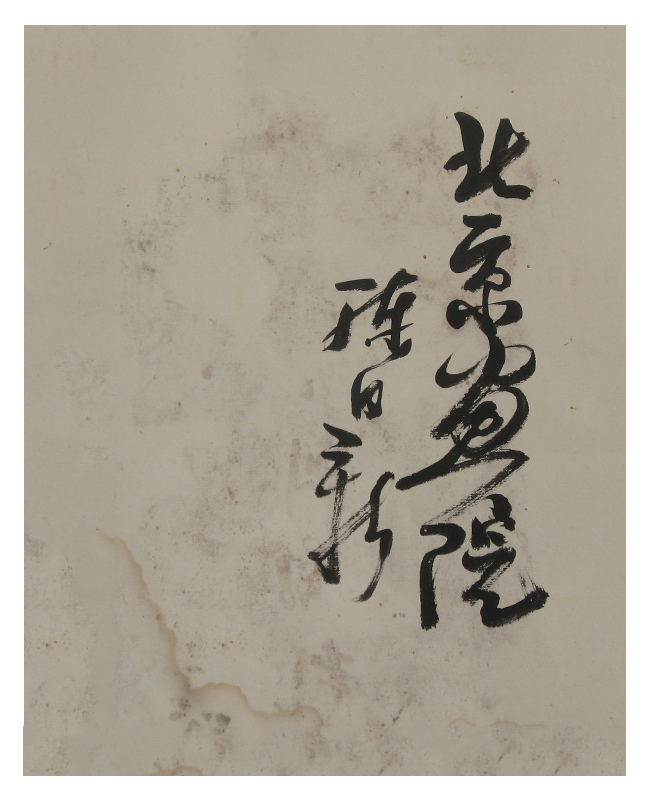 北京画院
陈日新